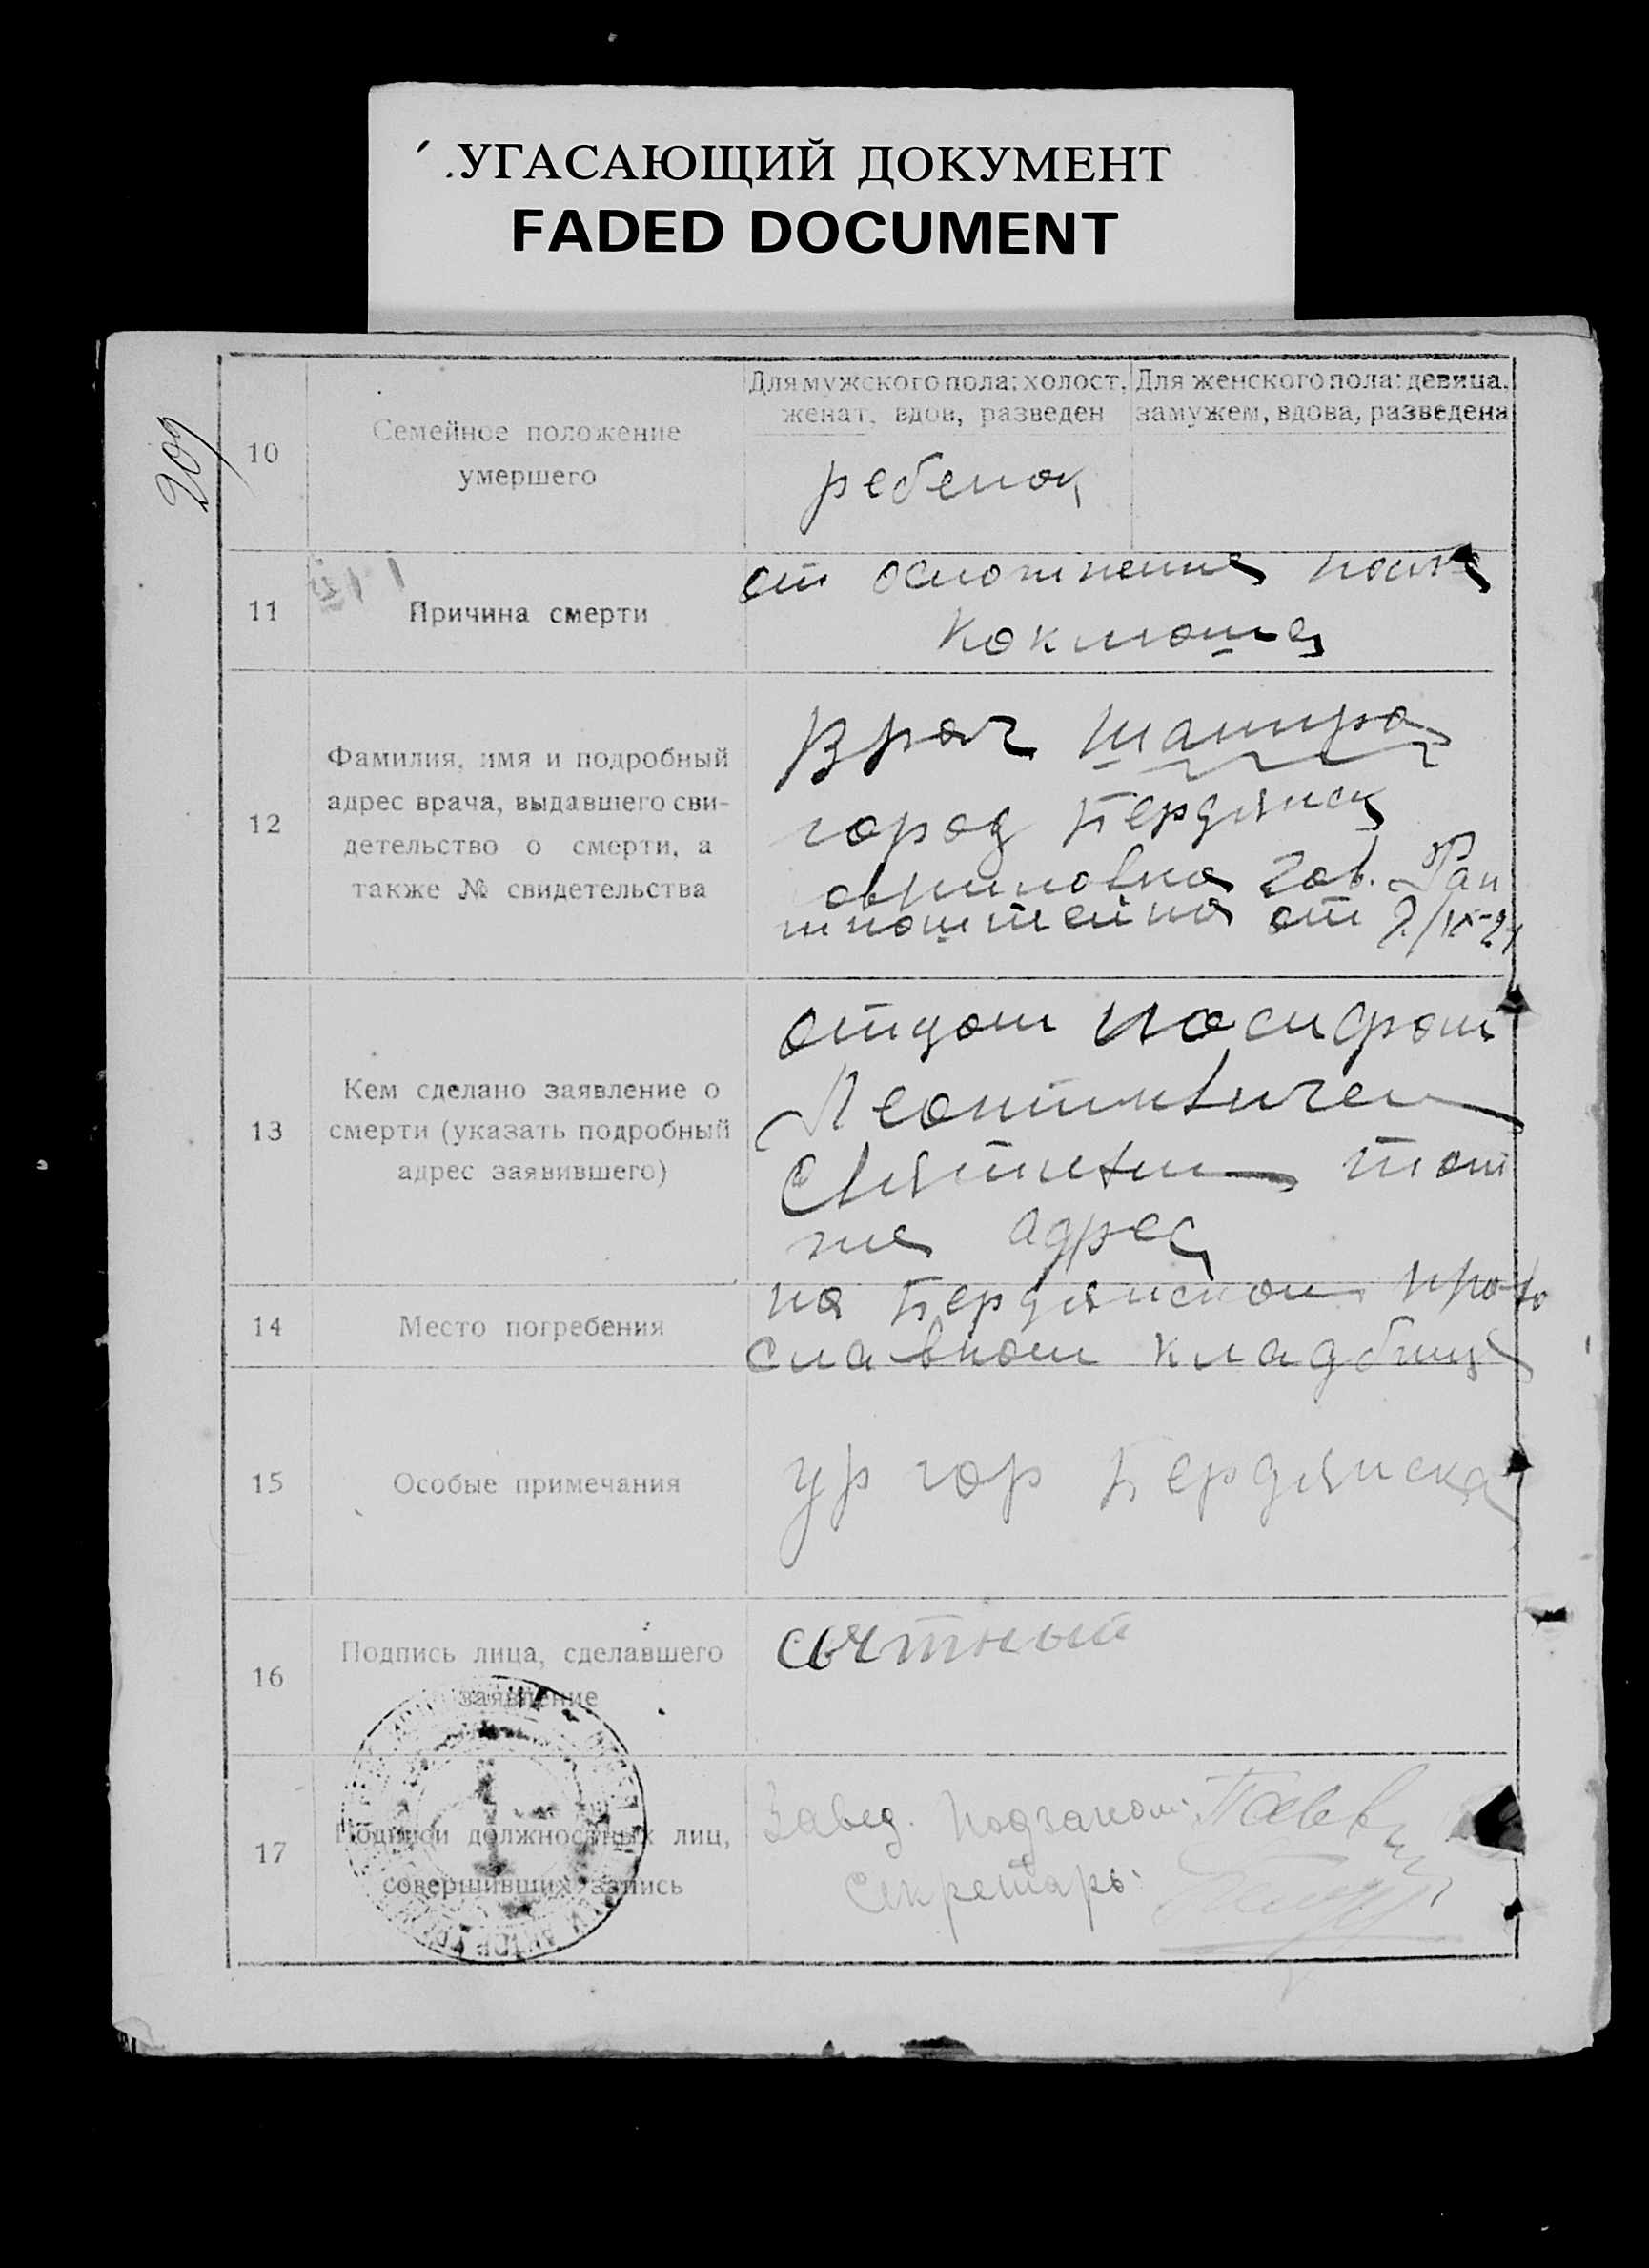 УГАСАЮЩИЙ ДОКУМЕНТ
FADED DOCUMENT
209
10
Семейное положение
умершего
Для мужского пола: холост,
женат, вдов, разведен
Для женского пола: девица,
замужем, вдова, разведена
ребенок
11
Причина смерти
от осложнения после
коклюша
12
Фамилия, имя и подробный
адрес врача, выдавшего сви-
детельство о смерти, а
также № свидетельства
Врач Шапиро
город Бердянск
от
13
Кем сделано заявление о
смерти (указать подробный
адрес заявившего)
отцом Иосифом
Леонтьевичем
тот
же адрес
14
Место погребения
на Бердянском право
славном кладбище
15
Особые примечания
ур гор Бердянска
16
Подпись лица, сделавшего
заявление
17
Подписи должностных лиц,
совершивших запись
Завед. Подзагсом:
Секретарь: